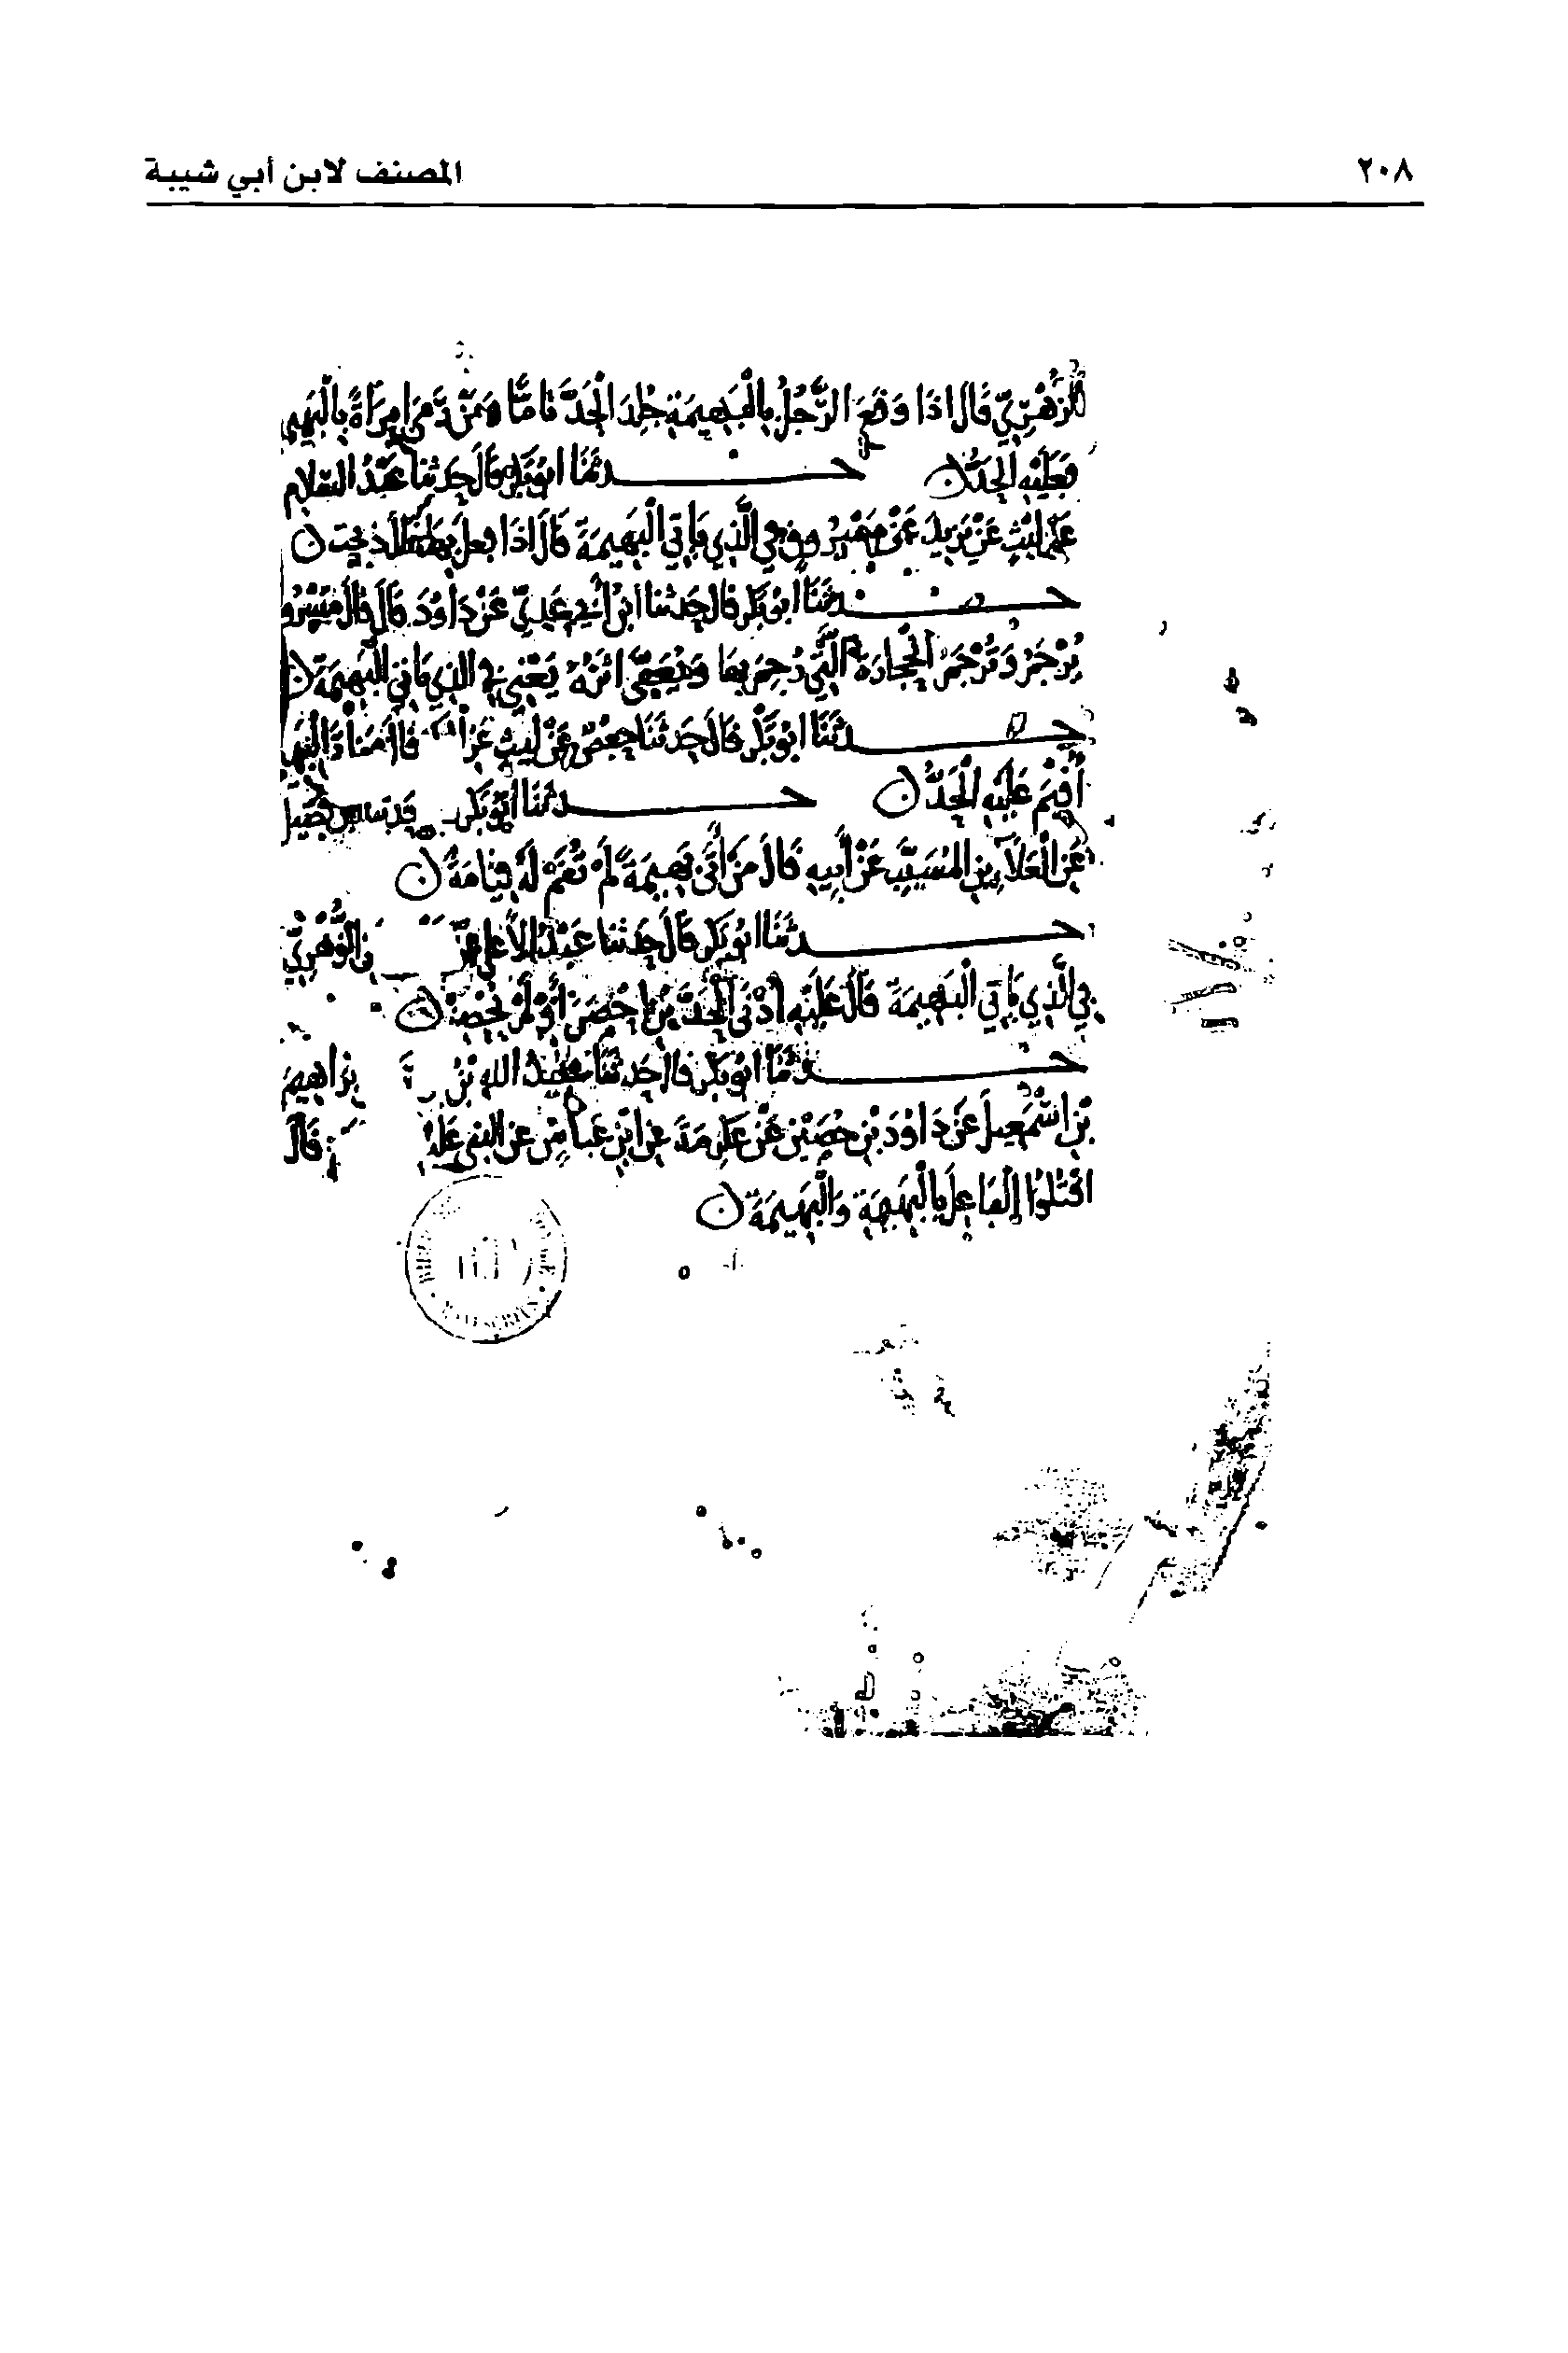 ٢٠٨ المصنف لابن أبي شيبة
الزُّهْرِيِّ قَالَ اذَا وَقَعَ الرَّجُلُ بِالْبَهِيمَةِ جُلِدَ الْحَدَّ تَامًّا وَمَنْ رَمَى امْرَأَةً بِالْبَهِيمَ
فَعَلَيْهِ الْحَدُّ ن حـــدثنا ابُو بَكْرٍ قَالَ حَدثنا عَبْدُ السَّلَامِ
عَنْ لَيْثٍ عَنْ يَزِيدَ عَنْ مَسْرُوقٍ فِي الَّذِي يَأتِي الْبَهِيمَةَ قَالَ اذَا فعلَ بِهَا ذُبِحَت ن
حـــدثَنَا ابُو بَكْرٍ قَالَ حَدثنا ابْنُ أَبِي عَدِيٍّ عَنْ دَاوُدَ قَالَ قَالَ مَسْرُو
يُرْجَمُ وَتُرْجَمُ الْحِجَارَةُ الَّتِي رُجِمَ بِهَا وَيُعَفَّى اثَرُهُ يَعْنِي فِي الذِي يَاتِي الْبَهِيمَةَ ن
حـــدثَنَا ابُو بَكْرٍ قَالَ حَدثَنَا حَفْصٌ عَنْ لَيْثٍ عَنْ قَالَ مَنْ أَتَى الْبَهِ
أُقِيمَ عَلَيْهِ الْحَدُّ ن حـــدثَنَا أَبُو بَكْرٍ فُضَيْلٍ
عَنِ الْعَلَاءِ بنِ الْمُسَيَّبِ عَنْ أَبِيهِ قَالَ مَنْ أَتَى بَهِيمَةً لَمْ تُقَمْ لَهُ قِيَامَةٌ ن
حـــدثَنَا ابُو بَكْرٍ قَالَ حَدثنا عَبْدُ الْأَعلى عَنْ الزُّهْرِيِّ
فِي الَّذِي يَاتِي الْبَهِيمَةَ قَالَ عَلَيْهِ أَدْنَى الْحَدَّيْنِ احْصَنَ أَوْ لَمْ يُحْصِنْ ن
حـــدثَنَا ابُو بَكْرٍ قَالَ حَدثَنَا عُبَيْدُ اللهِ بْنُ ابْرَاهِيمَ
بْنِ اسْمَعِيلَ عَنْ دَاوُدَ بْنِ حُصَيْنٍ عَنْ عِكْرِمَةَ عن ابْنِ عَبَاسٍ عن النبي عَلَيْهِ قَالَ
اقْتُلُوا الْفَاعِلَ بِالْبَهِيمَةِ وَالْبَهِيمَةَ ن